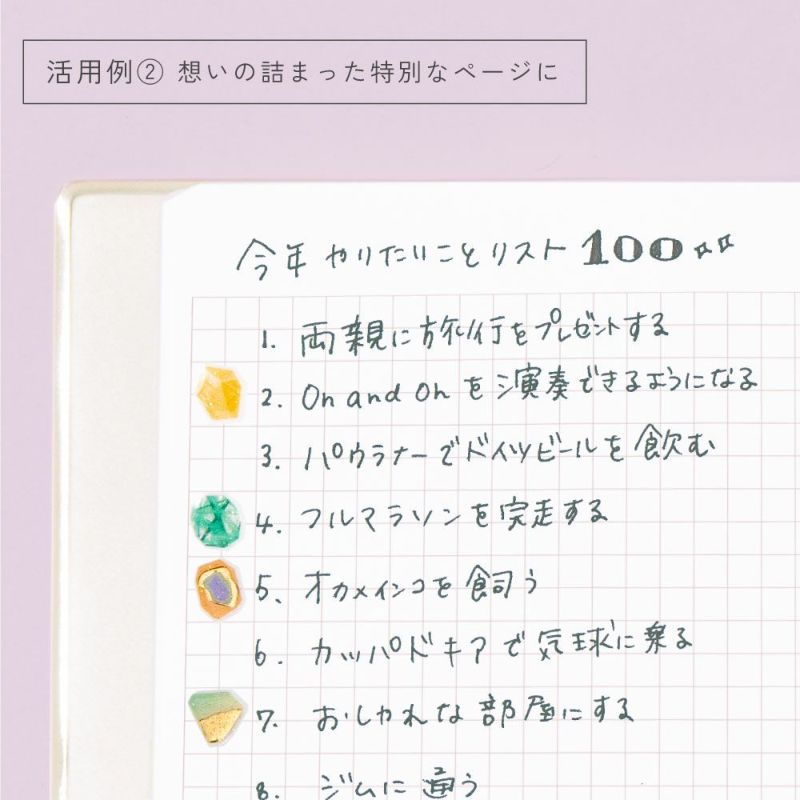 活用例② 想いの詰まった特別なページに
今年やりたいことリスト100
1. 両親に旅行をプレゼントする
2. On and Onを演奏できるようになる
3. パウラナーでドイツビールを飲む
4. フルマラソンを完走する
5. オカメインコを飼う
6. カッパドキアで気球に乗る
7. おしゃれな部屋にする
8. ジムに通う